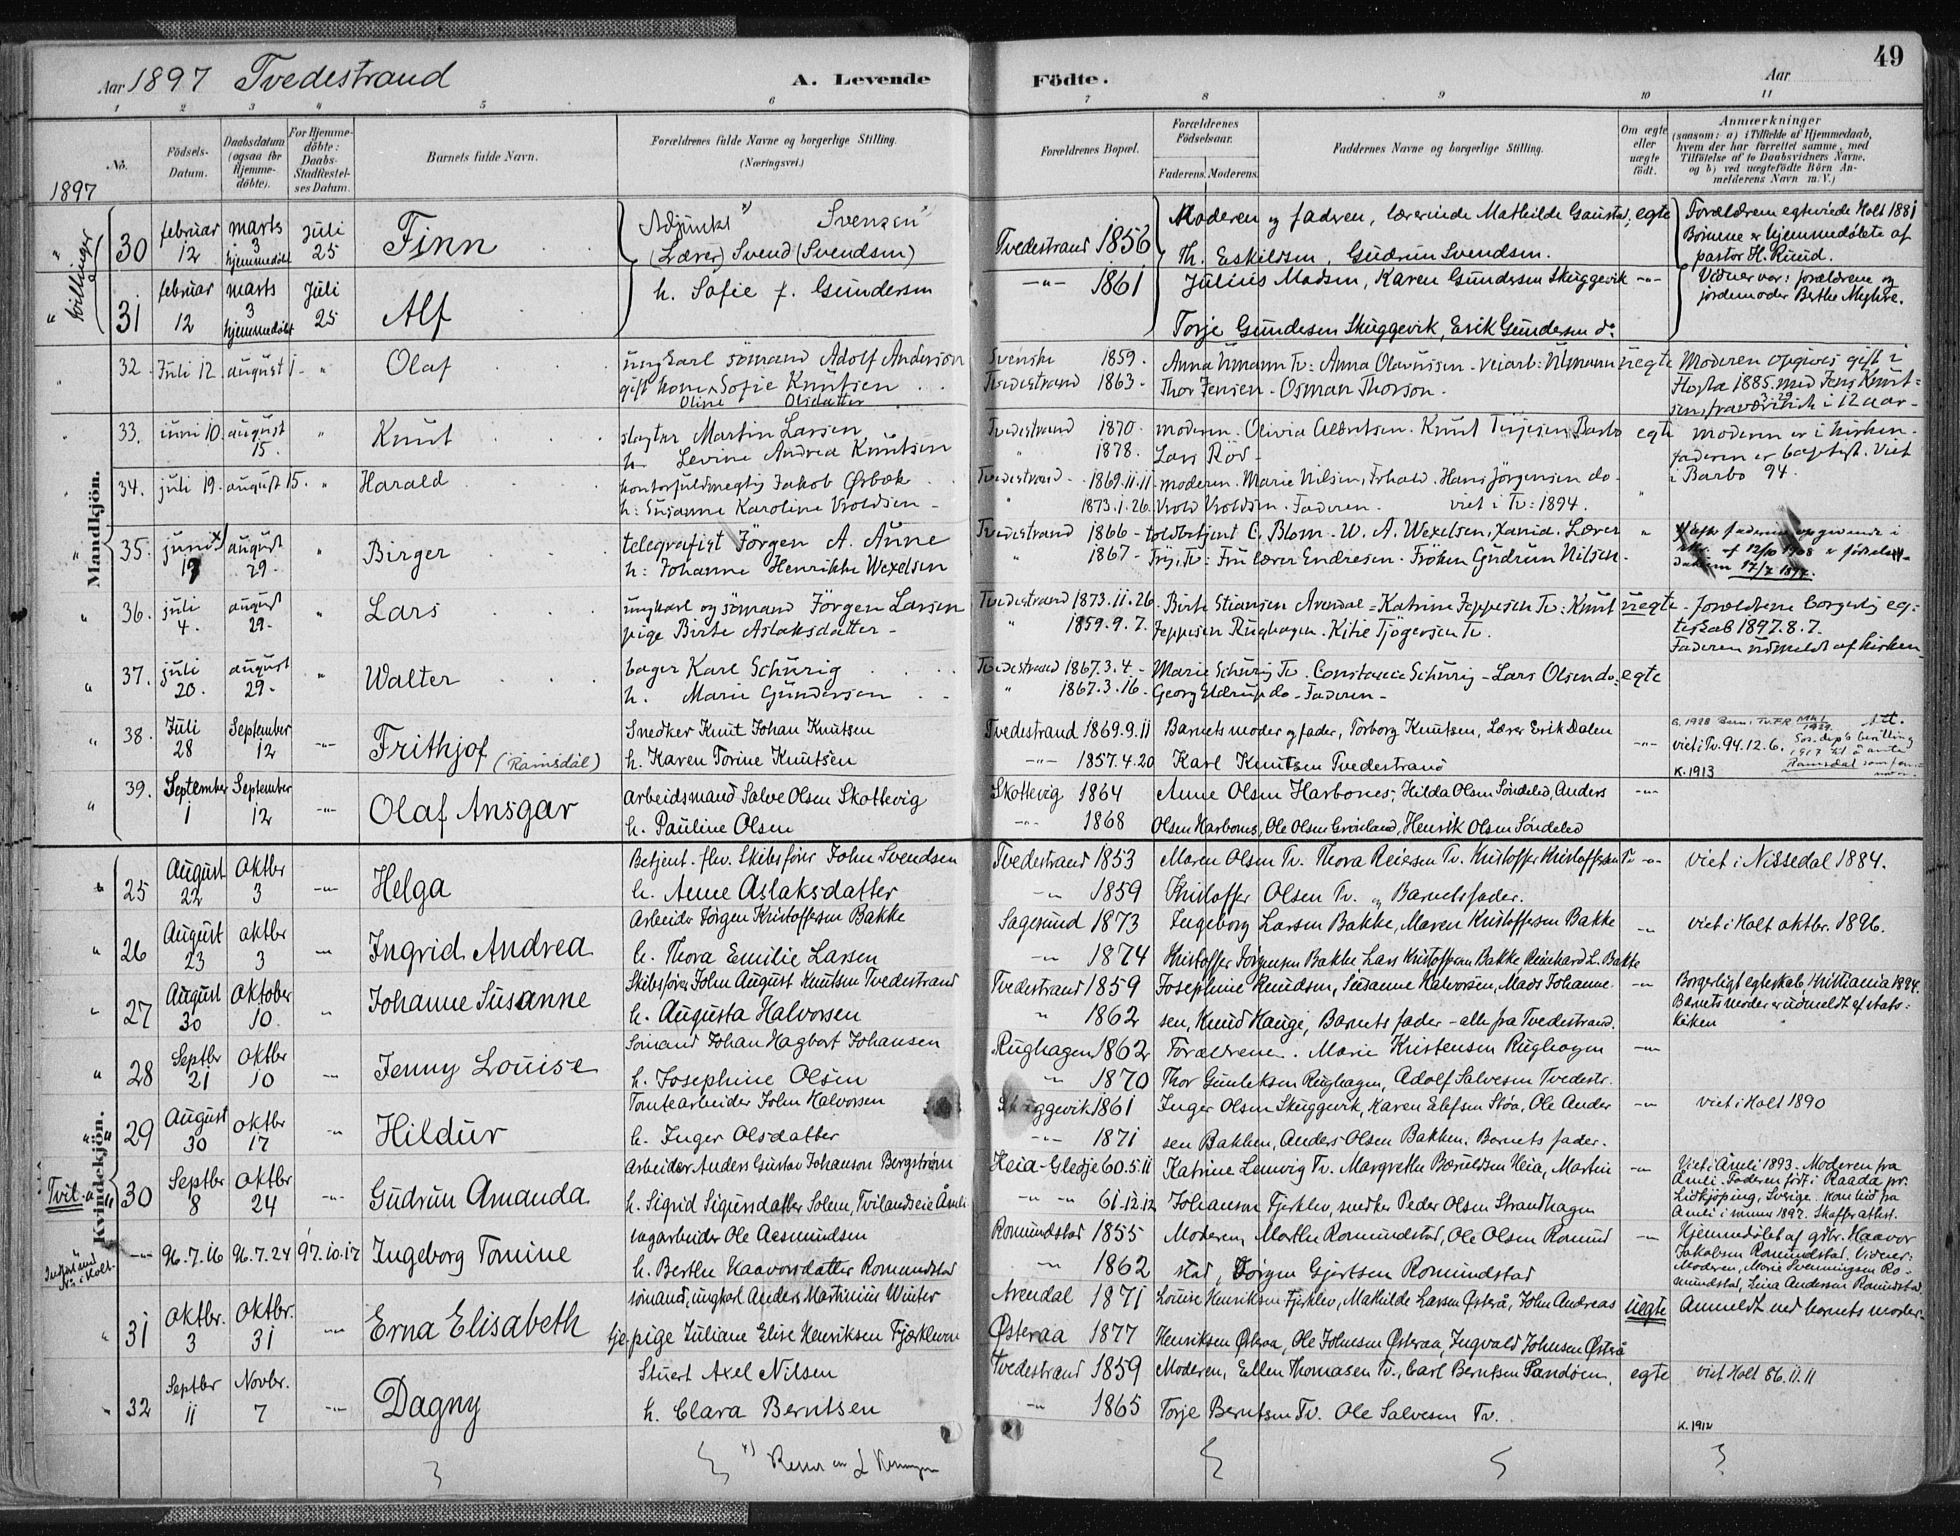 Aar 1897 Tvedestrand A. Levende Födte. Aar 49
1 2 3 4 5 6 7 8 9 10 11
No. Födsels-Datum. Daabsdatum (ogsaa for Hjemmedöbte). For Hjemmedöbte: Daabs-Stadfæstelses Datum. Barnets fulde Navn. Forældrenes fulde Navne og borgerlige Stilling. (Næringsvei.) Forældrenes Bopæl. Forældrenes Födselsaar. Faderens. Moderens. Faddernes Navne og borgerlige Stilling. Om ægte eller uægte födt. Anmærkninger (saasom: a) i Tilfælde af Hjemmedaab, hvem der har forrettet samme, med Tilföielse af to Daabsvidners Navne, og b) ved uægtefödte Börn Anmelderens Navn m. V.)
1897
Mandkjön.
tvillinger
30 februar 12 marts 3 hjemmedöbt Juli 25 Finn Adjunkt Svensen (Lærer) Svend (Svendsen) Tvedestrand 1856 Moderen og faderen, lærerinde Mathilde Th. Eskildsen, Gudrun Svendsen. egte Forældrene egteviede Holt 1881 Börnene er hjemmedöbte af pastor H. Riud.
31 februar 12 marts 3 hjemmedöbt Juli 25 Alf h. Sofie f. Gundersen -"- 1861 Julius Madsen, Karen Gundersen Skuggevik Torje Gundersen Skuggevik, Erik Gundersen do -"- Vidner var: forældrene og jordemoder Berthe
32. Juli 12. august 1. " Olaf ungkarl sömand Adolf Anderson gift kone Sofie Knutsen Oline Olsdatter Svenske 1859. Tvedestrand 1863. Anna Umann Tv: Anna Olavussen Thor Jensen - Osman Thorson. uegte Moderen opgives gift i Flosta 1885. med Jens Knutsen, fraværende i 12 aar -
33. juni 10. august 15. " Knut slagter Martin Larsen h. Levine Andrea Knutsen Tvedestrand 1870. " 1878. moderen. Olivia Albretsen. Knut Terjesen Barbo Lars Röd - egte moderen er i kirken. faderen er baptist. Viet i Barbo 94.
34. juli 19. august 15. " Harald kontorfuldmegtig Jakob Ørbæk h: Susanne Karoline Vroldsen - Tvedestrand - 1869.11.11. " 1873.1.26. moderen. Marie Nilsen, Hans Jörgensen do - Vrold Vroldsen. Faderen. viet i Tv: 1894. "
35. juni 17 august 29. " Birger telegrafist Jörgen A. Aune h: Johanne Henrikke Wexelsen Tvedestrand 1866 - " 1867 - toldbetjent C. Blom. W. A. Wexelsen, kand. Lærer Tv: Fru lærer Endresen. Fröken Gudrun Nilsen. " x) efter faderens opgivende i skr. af 12/10 1908 er födselsdatoen 17/7 1897.
36. juli 4. august 29. " Lars ungkarl og sömand Jörgen Larsen pige Birte Aslaksdatter - Tvedestrand 1873.11.26. " 1859.9.7. Birte Stiansen Arendal - Katrine Jeppesen Tv: Knut Jeppesen Rughagen. Kitie Tjögersen Tv. uegte - forældrene borgerlig egteskab 1897.8.7. Faderen udmeldt af kirken -
37. juli 20. august 29. " Walter bager Karl Schurig h. Marie Gundersen Tvedestrand 1867.3.4 - " 1867.3.16. Marie Schurig Tv. Constance Schurig - Lars Olsen do: Georg Eldrup do - Faderen - egte
38. Juli 28 September 12 -"- Frithjof (Ramsdal) Snedker Knut Johan Knutsen h. Karen Torine Knutsen Tvedestrand 1869.9.11 -"- 1857.4.20 Barnets moder og fader, Torborg Knutsen, Lærer Erik Dalen Karl Knutsen Tvedestrand -"- viet i Tv. 94.12.6. K. 1913 Ramsdal
39. September 1 September 12 -"- Olaf Ansgar Arbeidsmand Salve Olsen Skottevig h. Pauline Olsen Skottevig 1864 -"- 1868 Anne Olsen Harbones, Hilda Olsen Söndeled, Anders Olsen Harbones, Ole Olsen Henrik Olsen Söndeled -"-
Kvindekjön.
25 August 22 Oktbr 3 -"- Helga Betjent. fhv. Skibsförer John Svendsen h. Anne Aslaksdatter Tvedestrand 1853 -"- 1859 Maren Olsen Tv. Thora Reiersen Tv. Kristoffer Kristoffersen Tv Kristoffer Olsen Tv. og Barnets fader. -"- viet i Nissedal 1884.
26 August 23 oktbr 3 -"- Ingrid Andrea Arbeider Jörgen Kristoffersen Bakke h. Thora Emilie Larsen Sagesund 1873 -"- 1874 Ingeborg Larsen Bakke, Maren Kristoffersen Bakke Kristoffer Jörgensen Bakke Lars Kristoffersen Bakke Reinhard L. Bakke -"- viet i Holt oktbr. 1896.
27 August 30 oktober 10. " Johanne Susanne Skibsförer John August Knutsen Tvedestrand h. Augusta Halvorsen Tvedestrand 1859 " 1862 Josephine Knudsen, Susanne Halvorsen, Mads Johannesen, Knud Hauge, Barnets fader - alle fra Tvedestrand. -"- Borgerligt egteskab, Kristiania 1894. Barnets moder er udmeldt af statskirken
28 Septbr 21 oktbr 10 -"- Jenny Louise Sömand Johan Hagbart Johansen h. Josephine Olsen Rughagen 1862 " 1870 Forældrene. Marie Kristensen Rughagen Thor Gunleksen Rughagen, Adolf Salvesen Tvedestr. -"-
29 August 30 oktbr 17 -"- Hildur Tomtearbeider John Halvorsen h. Inger Olsdatter Skuggevik 1861 -"- 1871 Inger Olsen Skuggevik, Karen Elefsen Støa, Ole Andersen Bakken, Anders Olsen Bakken. Barnets fader. -"- viet i Holt 1890
30 Septbr 8 oktbr 24 -"- Gudrun Amanda Arbeider Anders Gustav Johanson Bergström h. Sigrid Sigursdatter Solem, Tvilandseie Åmli Heia-Gledje 60.5.11 -"- 61.12.12 Katrine Lemvig Tv. Margrethe Heia, Martin Johanson Fjerklev, snedker Peder Olsen Strandhagen -"- Viet i Åmli 1893. Moderen fra Åmli. Faderen födt i Raada pr. Lidkjöping, Sverige. kom hid fra Åmli i sommer 1897. Skaffer attest.
-"- 96.7.16 96.7.24 97.10.17 Ingeborg Tomine sagarbeider Ole Aasmundsen h. Berthe Haavorsdatter Romundstad Romundstad 1855 -"- 1862 Moderen, Marthe Romundstad, Ole Olsen Romundstad, Jörgen Gjertsen Romundstad -"- Hjemmedöbt af gdbr. Haavor Jakobsen Romundstad. Vidner: Moderen, Marie Svenningsen Romundstad, Lina Andersen Romundstad
31 Oktbr. 3 Oktbr. 31 -"- Erna Elisabeth sömand, ungkarl Anders Martinius Winter tjepige Juliane Elise Henriksen Fjærkleven Arendal 1871 Østeraa 1877 Louise Henriksen Fjerklev, Mathilde Larsen Østerå, John Andreas Henriksen Østeraa, Ole Johnsen Østeraa, Ingvald Johnsen Østerå uegte Anmeldt ved barnets moder.
32 Septbr 11 Novbr. 7 -"- Dagny Stuert Axel Nilsen h. Clara Berntsen Tvedestrand 1859 -"- 1865 Moderen, Ellen Thomasen Tv., Carl Berntsen Sandöen, Torje Berntsen Tv. Ole Salvesen Tv. egte viet Holt 86.11.11 K. 1912